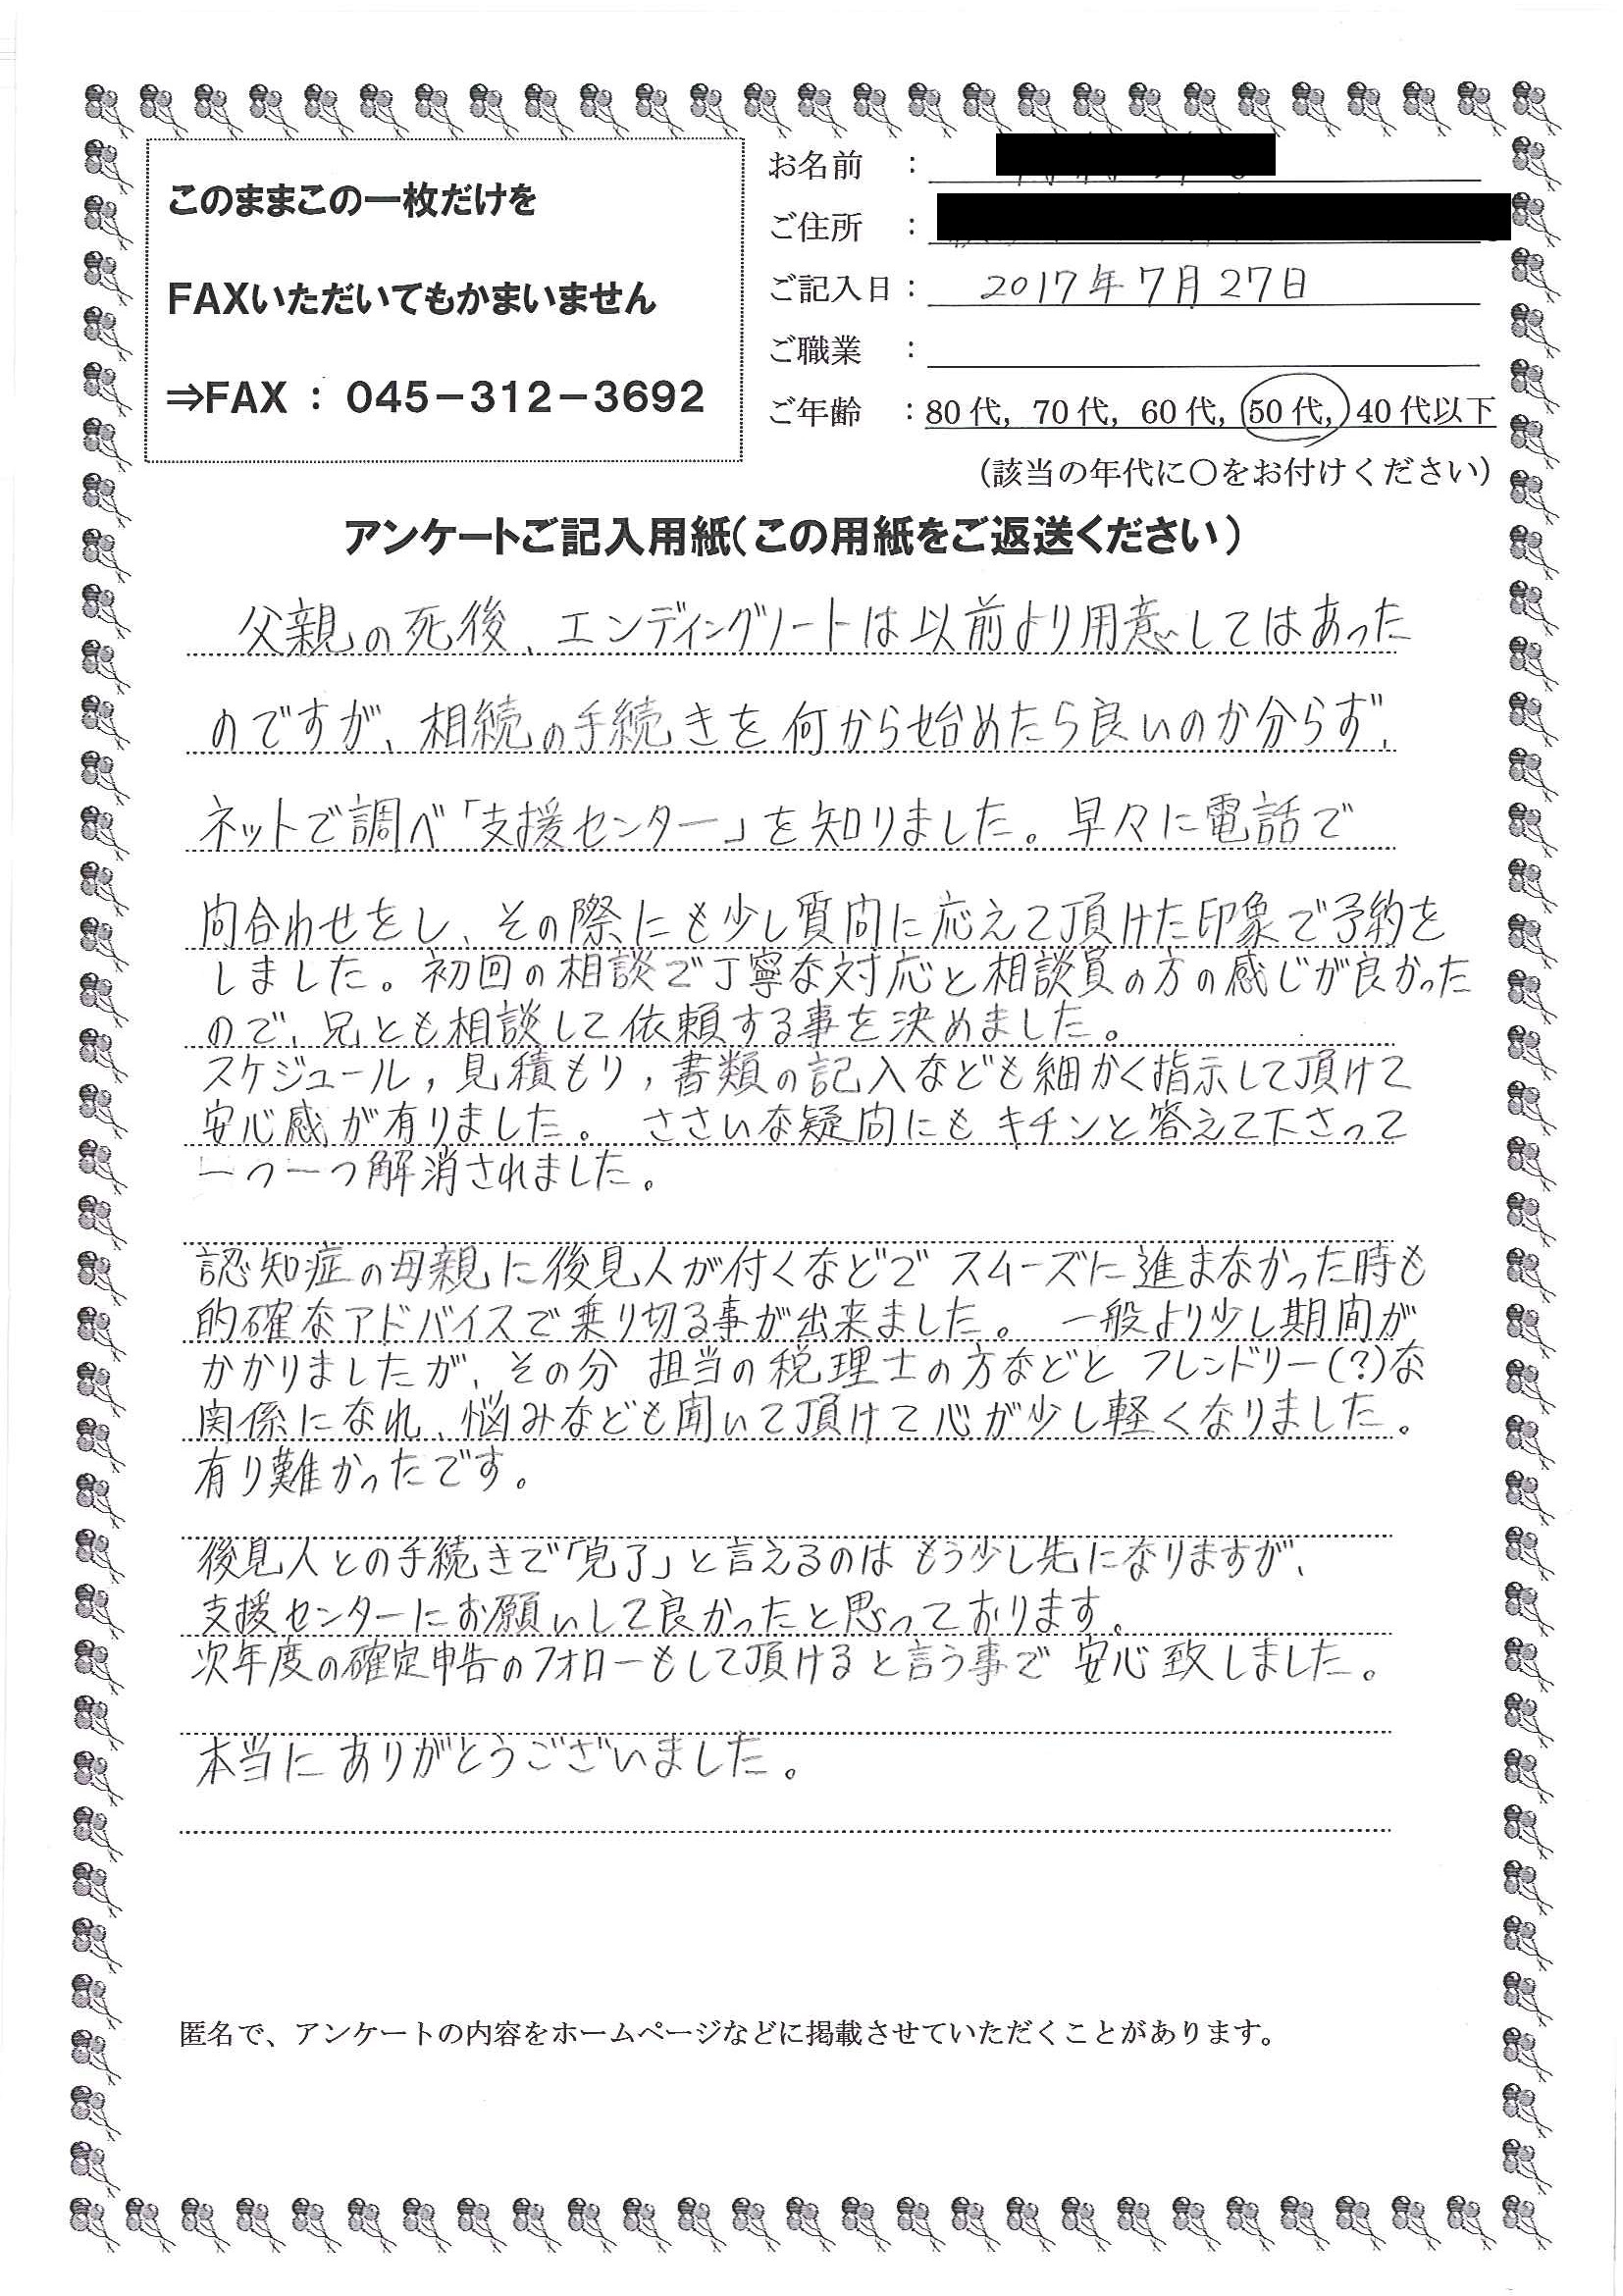 このままこの一枚だけを
FAXいただいてもかまいません
⇒FAX : 045-312-3692
お名前 :
ご住所 :
ご記入日 : 2017年7月27日
ご職業 :
ご年齢 : 80代, 70代, 60代, 50代, 40代以下
(該当の年代に○をお付けください)
アンケートご記入用紙(この用紙をご返送ください)
父親の死後、エンディングノートは以前より用意してはあった
のですが、相続の手続きを何から始めたら良いのか分らず、
ネットで調べ「支援センター」を知りました。早々に電話で
問合わせをし、その際にも少し質問に応えて頂けた印象で予約を
しました。初回の相談で丁寧な対応と相談員の方の感じが良かった
ので、兄とも相談して依頼する事を決めました。
スケジュール,見積もり,書類の記入なども細かく指示して頂けて
安心感が有りました。ささいな疑問にもキチンと答えて下さって
一つ一つ解消されました。
認知症の母親に後見人が付くなどでスムーズに進まなかった時も
的確なアドバイスで乗り切る事が出来ました。一般より少し期間が
かかりましたが、その分担当の税理士の方などとフレンドリー(?)な
関係になれ、悩みなども聞いて頂けて心が少し軽くなりました。
有り難かったです。
後見人との手続きで「完了」と言えるのはもう少し先になりますが、
支援センターにお願いして良かったと思っております。
次年度の確定申告のフォローもして頂けると言う事で安心致しました。
本当にありがとうございました。
匿名で、アンケートの内容をホームページなどに掲載させていただくことがあります。